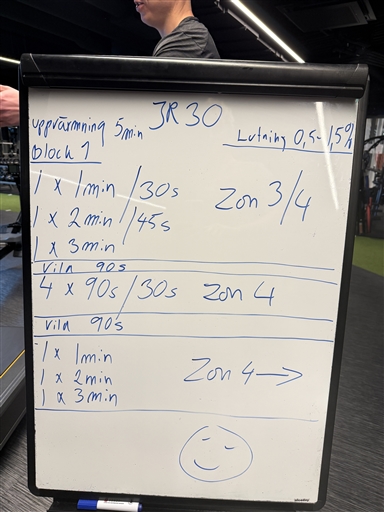 JR 30
uppvärmning 5min
Lutning 0,5-1,5%
block 1
1 x 1min / 30s
Zon 3/4
1 x 2min / 45s
1 x 3min
Vila 90s
4 x 90s / 30s Zon 4
Vila 90s
1 x 1min
1 x 2min
Zon 4 →
1 x 3min